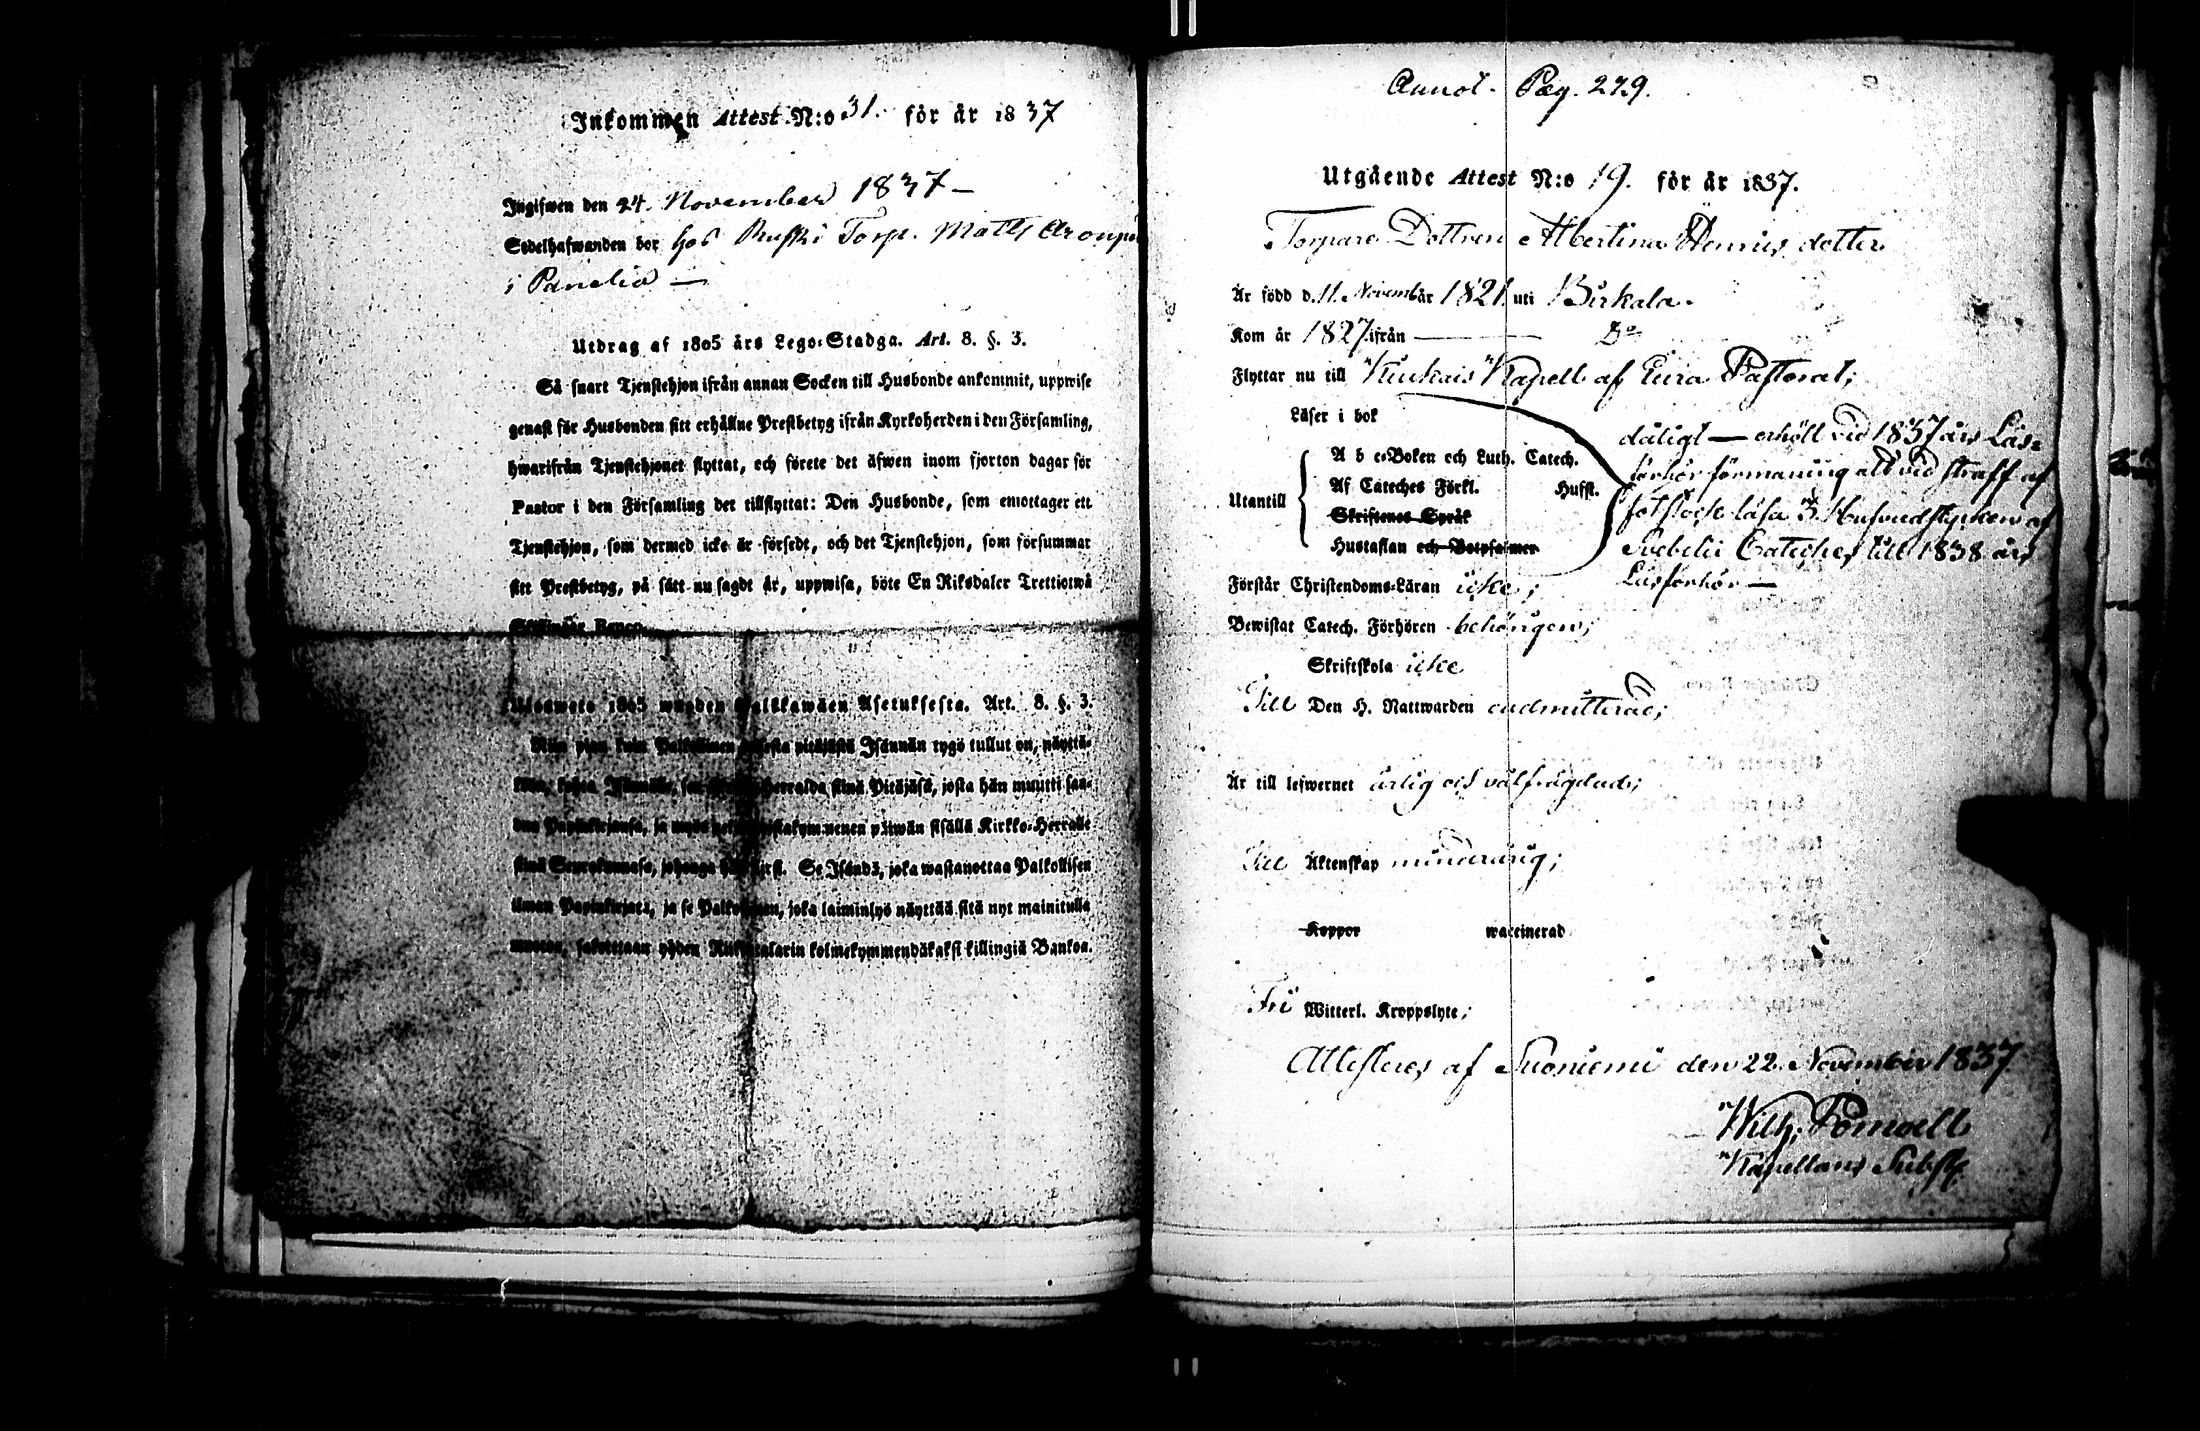 Inkommen Attest N:o 31. för år 1837
Ingifwen den 24. November 1837 —
Sedelhafwanden bor hos Ruski Torp. Matts
i Panelia —
Utdrag af 1805 års Lego-Stadga. Art. 8. §. 3.
Så snart Tjenstehjon ifrån annan Socken till Husbonde ankommit, uppwise
genast för Husbonden sitt erhållne Prestbetyg ifrån Kyrkoherden i den Församling,
hwarifrån Tjenstehjonet flyttat, och förete det äfwen inom fjorton dagar för
Pastor i den Församling det tillflyttat: Den Husbonde, som emottager ett
Tjenstehjon, som dermed icke är försedt, och det Tjenstehjon, som försummar
sitt Prestbetyg, på sätt nu sagdt är, uppwisa, böte En Riksdaler Trettiotwå
Banco.
1805 wuoden Asetuksesta. Art. 8. §. 3.
Niin pian kuin pitäjästä Isännän tygö tullut on, näyttä-
sinä Pitäjäsä, josta hän muutti saa-
sisällä Kirkko-Herralle
Se Isändä, joka wastanottaa Palkollisen
ilman Papinkirjata, ja se joka laiminlyö näyttää sitä nyt mainitulla
muoton, sakottaan yhden kolmekymmendäkaksi killingiä Bankoa.
Annot. Pag. 279.
Utgående Attest N:o 19. för år 1837.
Torpare Dottren Albertina Henriks dotter
Är född d. 11. November 1821. uti Birkala.
Kom år 1827. ifrån — Do
Flyttar nu till Kiukais Kapell af Eura Pastorat;
Läser i bok
dåligt — erhöll vid 1837 års Läs-
förhör förmaning att vid straff af
fotstock läsa 3 Hufvudstycken af
Svebelii Cateches till 1838 års
Läsförhör —
Utantill
A b c-Boken och Luth. Catech.
Af Cateches Förkl. Hufst.
Skriftenes Språk
Hustaflan och Botpsalmer
Förstår Christendoms-Läran icke;
Bewistat Catech. Förhören behörigen;
Skriftskola icke
Till Den H. Nattwarden oadmitterad;
Är till lefwernet ärlig och välfrägdad;
Till Äktenskap minderårig;
Koppor waccinerad
Fri Witterl. Kroppslyte;
Attesteras af Suoniemi den 22. November 1837
Wilh.
Kapellans Subst.